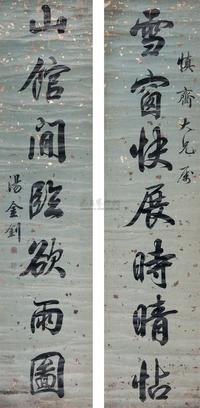 慎齋大兄屬
雪窗快展時晴帖
山館閒臨欲雨圖
湯金釗